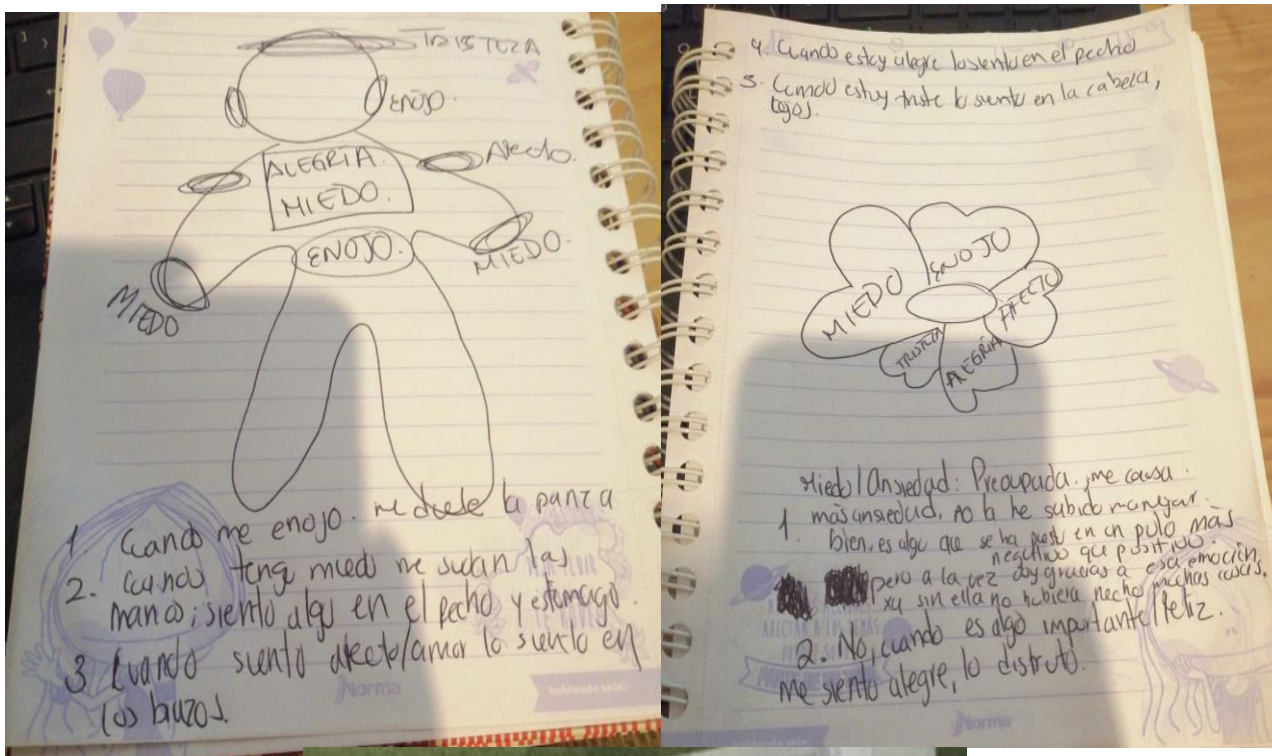 TRISTEZA
ENOJO.
ALEGRÍA.
MIEDO.
Afecto.
ENOJO.
MIEDO.
MIEDO
1. Cuando me enojo. me duele la panza
2. Cuando tengo miedo me sudan las
manos; siento algo en el pecho y estomago.
3 Cuando siento afecto/amor lo siento en
los brazos.
Norma
4. Cuando estoy alegre lo siento en el pecho
5. Cuando estoy triste lo siento en la cabeza,
ojos.
MIEDO
ENOJO
AFECTO
TRISTEZA
ALEGRÍA
Miedo/Ansiedad: Preocupada. me causa.
1. más ansiedad, no la he sabido manejar.
bien, es algo que se ha puesto en un polo más
negativo que positivo.
pero a la vez doy gracias a esa emoción,
xq sin ella no hubiera hecho muchas cosas.
2. No, cuando es algo importante/feliz.
me siento alegre, lo disfruto.
Norma